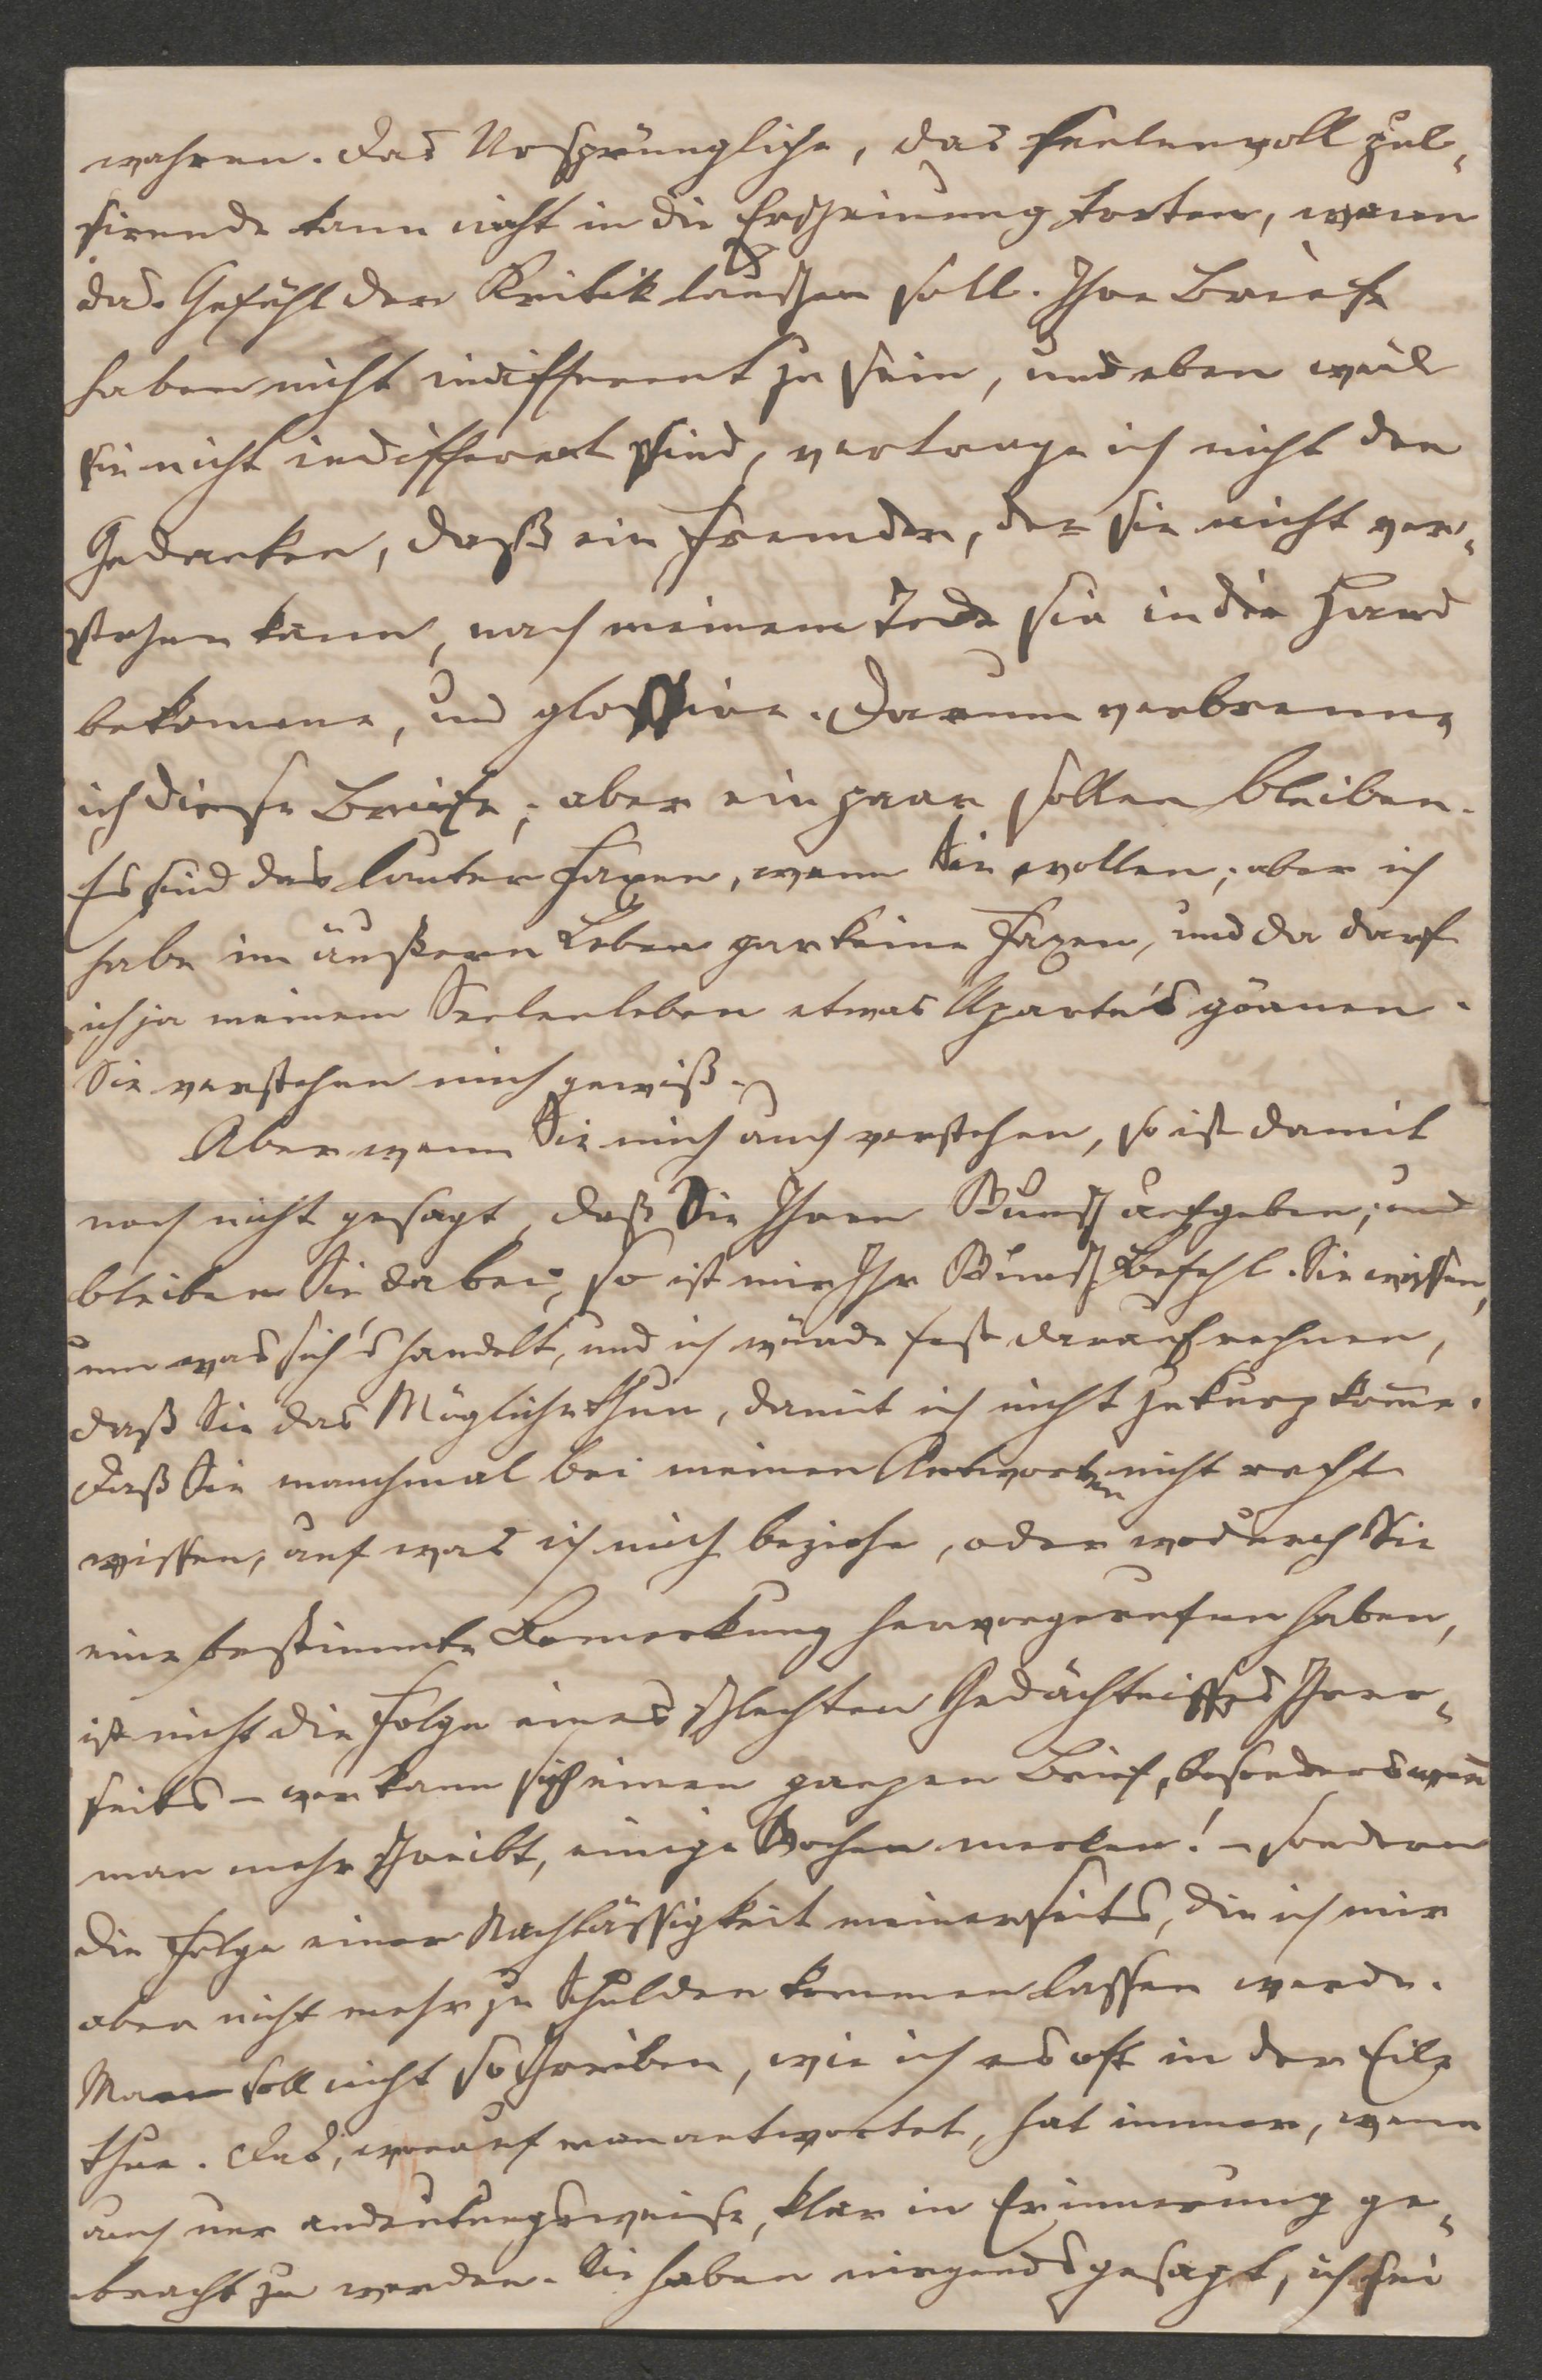 wahren. Das Ursprüngliche, das seelenvoll pul-
sirende kann nicht in die Erscheinung treten, wenn
das Gefühl der Kritik lauschen soll. Ihre Briefe
haben nicht indifferent zu sein, und eben weil
sie nicht indifferent sind, vertrage ich nicht den
Gedanken, daß ein Fremder, der sie nicht ver-
stehen kann, nach meinem Tode sie in die Hand
bekomme, und glossire. Darum verbrenne
ich diese Briefe; aber ein paar sollen bleiben.
Es sind das lauter Faxen, wenn Sie wollen; aber ich
habe im äußern Leben gar keine Faxen, und da darf
ich ja meinem Seelenleben etwas Aparte's gönnen.
Sie verstehen mich gewiß.
Aber wenn Sie mich auch verstehen, so ist damit
noch nicht gesagt, daß Sie Ihren Wunsch aufgeben; und
bleiben Sie dabei, so ist mir Ihr Wunsch Befehl. Sie wissen,
um was sich's handelt, und ich würde fest darauf rechnen,
daß Sie das Mögliche thun, damit ich nicht zu kurz kome.
Daß Sie manchmal bei meinen Antworten nicht recht
wissen, auf was ich mich beziehe, oder wodurch Sie
eine bestimmte Bemerkung hervorgerufen haben,
ist nicht die Folge eines schlechten Gedächtnisses Ihrer-
seits – wer kann sich einen ganzen Brief, besonders wen
man mehr schreibt, einige Wochen merken! – sondern
die Folge einer Nachlässigkeit meinerseits, die ich mir
aber nicht mehr zu Schulden kommen lassen werde.
Man soll nicht so schreiben, wie ich es oft in der Eile
thue. Das, worauf man antwortet, hat immer, wenn
auch nur andeutungsweise, klar in Erinnerung ge-
bracht zu werden. Sie haben nirgends gesagt, ich sei